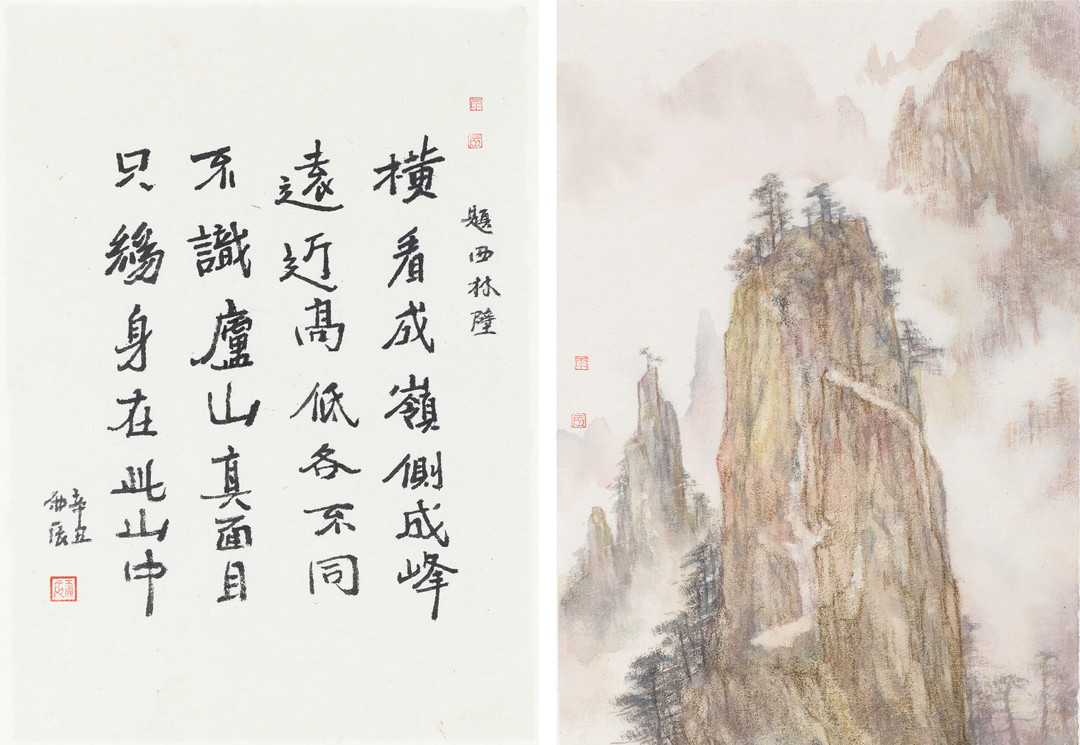 題西林壁
橫看成嶺側成峰
遠近高低各不同
不識廬山真面目
只緣身在此山中
辛丑